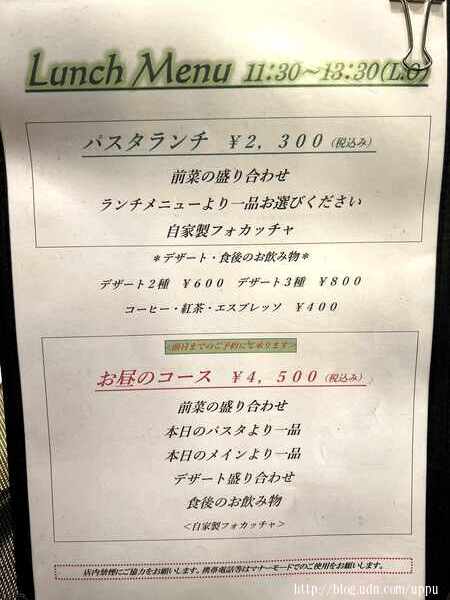 Lunch Menu 11:30～13:30(L.O)
パスタランチ ￥2,300（税込み）
前菜の盛り合わせ
ランチメニューより一品お選びください
自家製フォカッチャ
＊デザート・食後のお飲み物＊
デザート２種 ￥６００ デザート３種 ￥８００
コーヒー・紅茶・エスプレッソ ￥４００
<前日までのご予約にて承ります>
お昼のコース ￥4,500（税込み）
前菜の盛り合わせ
本日のパスタより一品
本日のメインより一品
デザート盛り合わせ
食後のお飲み物
＜自家製フォカッチャ＞
店内禁煙にご協力をお願いします。携帯電話等はマナーモードでのご使用をお願いします。
http://blog.udn.com/uppu